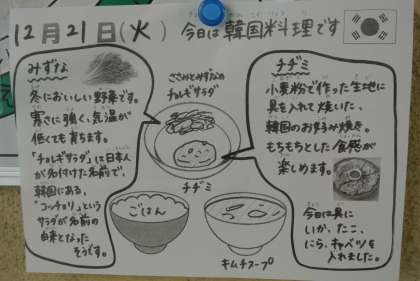 12月21日(火) 今日は韓国料理です
みずな
冬においしい野菜です。
寒さに強く、気温が
低くても育ちます。
「チョレギサラダ」は日本人
が名付けた名前で、
韓国にある、
「コッチョリ」という
サラダが名前の
由来となった
そうです。
ささみとみずなの
チョレギサラダ
チヂミ
ごはん
キムチスープ
チヂミ
小麦粉で作った生地に
具を入れて焼いた、
韓国のお好み焼き。
もちもちとした食感が
楽しめます。
今日は具に
いか、たこ、
にら、キャベツを
入れました。